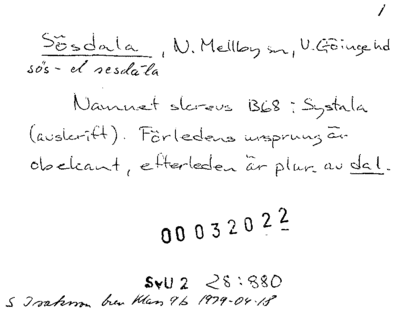 1
Sösdala, N. Mellby sn, V. Göinge hd
sös- el sesdala
Namnet skrevs 1368: Systala
(avskrift). Förledens ursprung är
obekant, efterleden är plur. av dal.
00032022
SvU 2 28:880
S Isaksson brev Klass 9b 1979-04-18